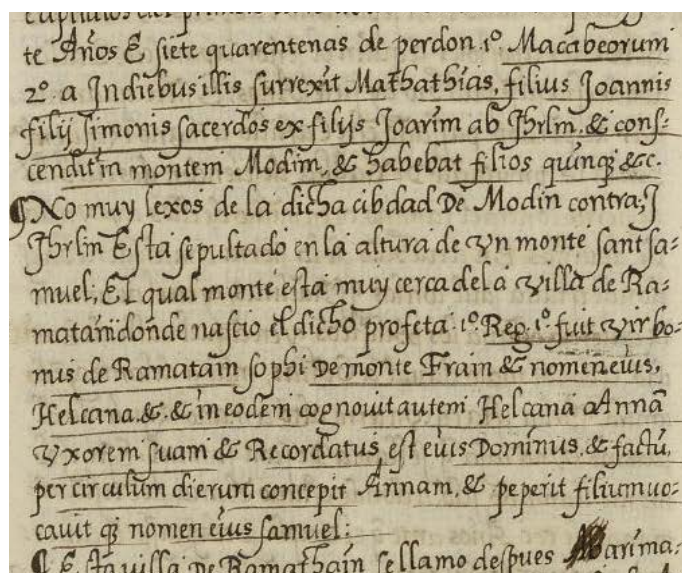 capitulos del primer
te Años E siete quarentenas de perdon. 1º. Macabeorum
2º. a Indiebus illis surrexit Mathathias, filius Joannis
filij simonis sacerdos ex filijs Joarim ab Jhrlm. & cons:
cendit in montem Modim, & habebat filios quinqꝫ &c.
¶ No muy lexos de la dicha cibdad De Modin contra, J
Jhrlm Esta sepultado en la altura de vn monte sant sa:
muel; El qual monte esta muy cerca dela villa de Ra:
matam donde nascio el dicho profeta. 1º. Reg. 1º. fuit vir bo:
nus de Ramatain sophi De monte Frain & nomen eius,
Helcana. &. & in eodem cognouit autem Helcana aAnnā
vxorem suam & Recordatus, est eius Dominus, & factū,
per circulum dierum concepit Annam, & peperit filium uo:
cauit qꝫ nomen eius samuel:
¶ Esta villa De Ramathain se llamo despues Abarima: